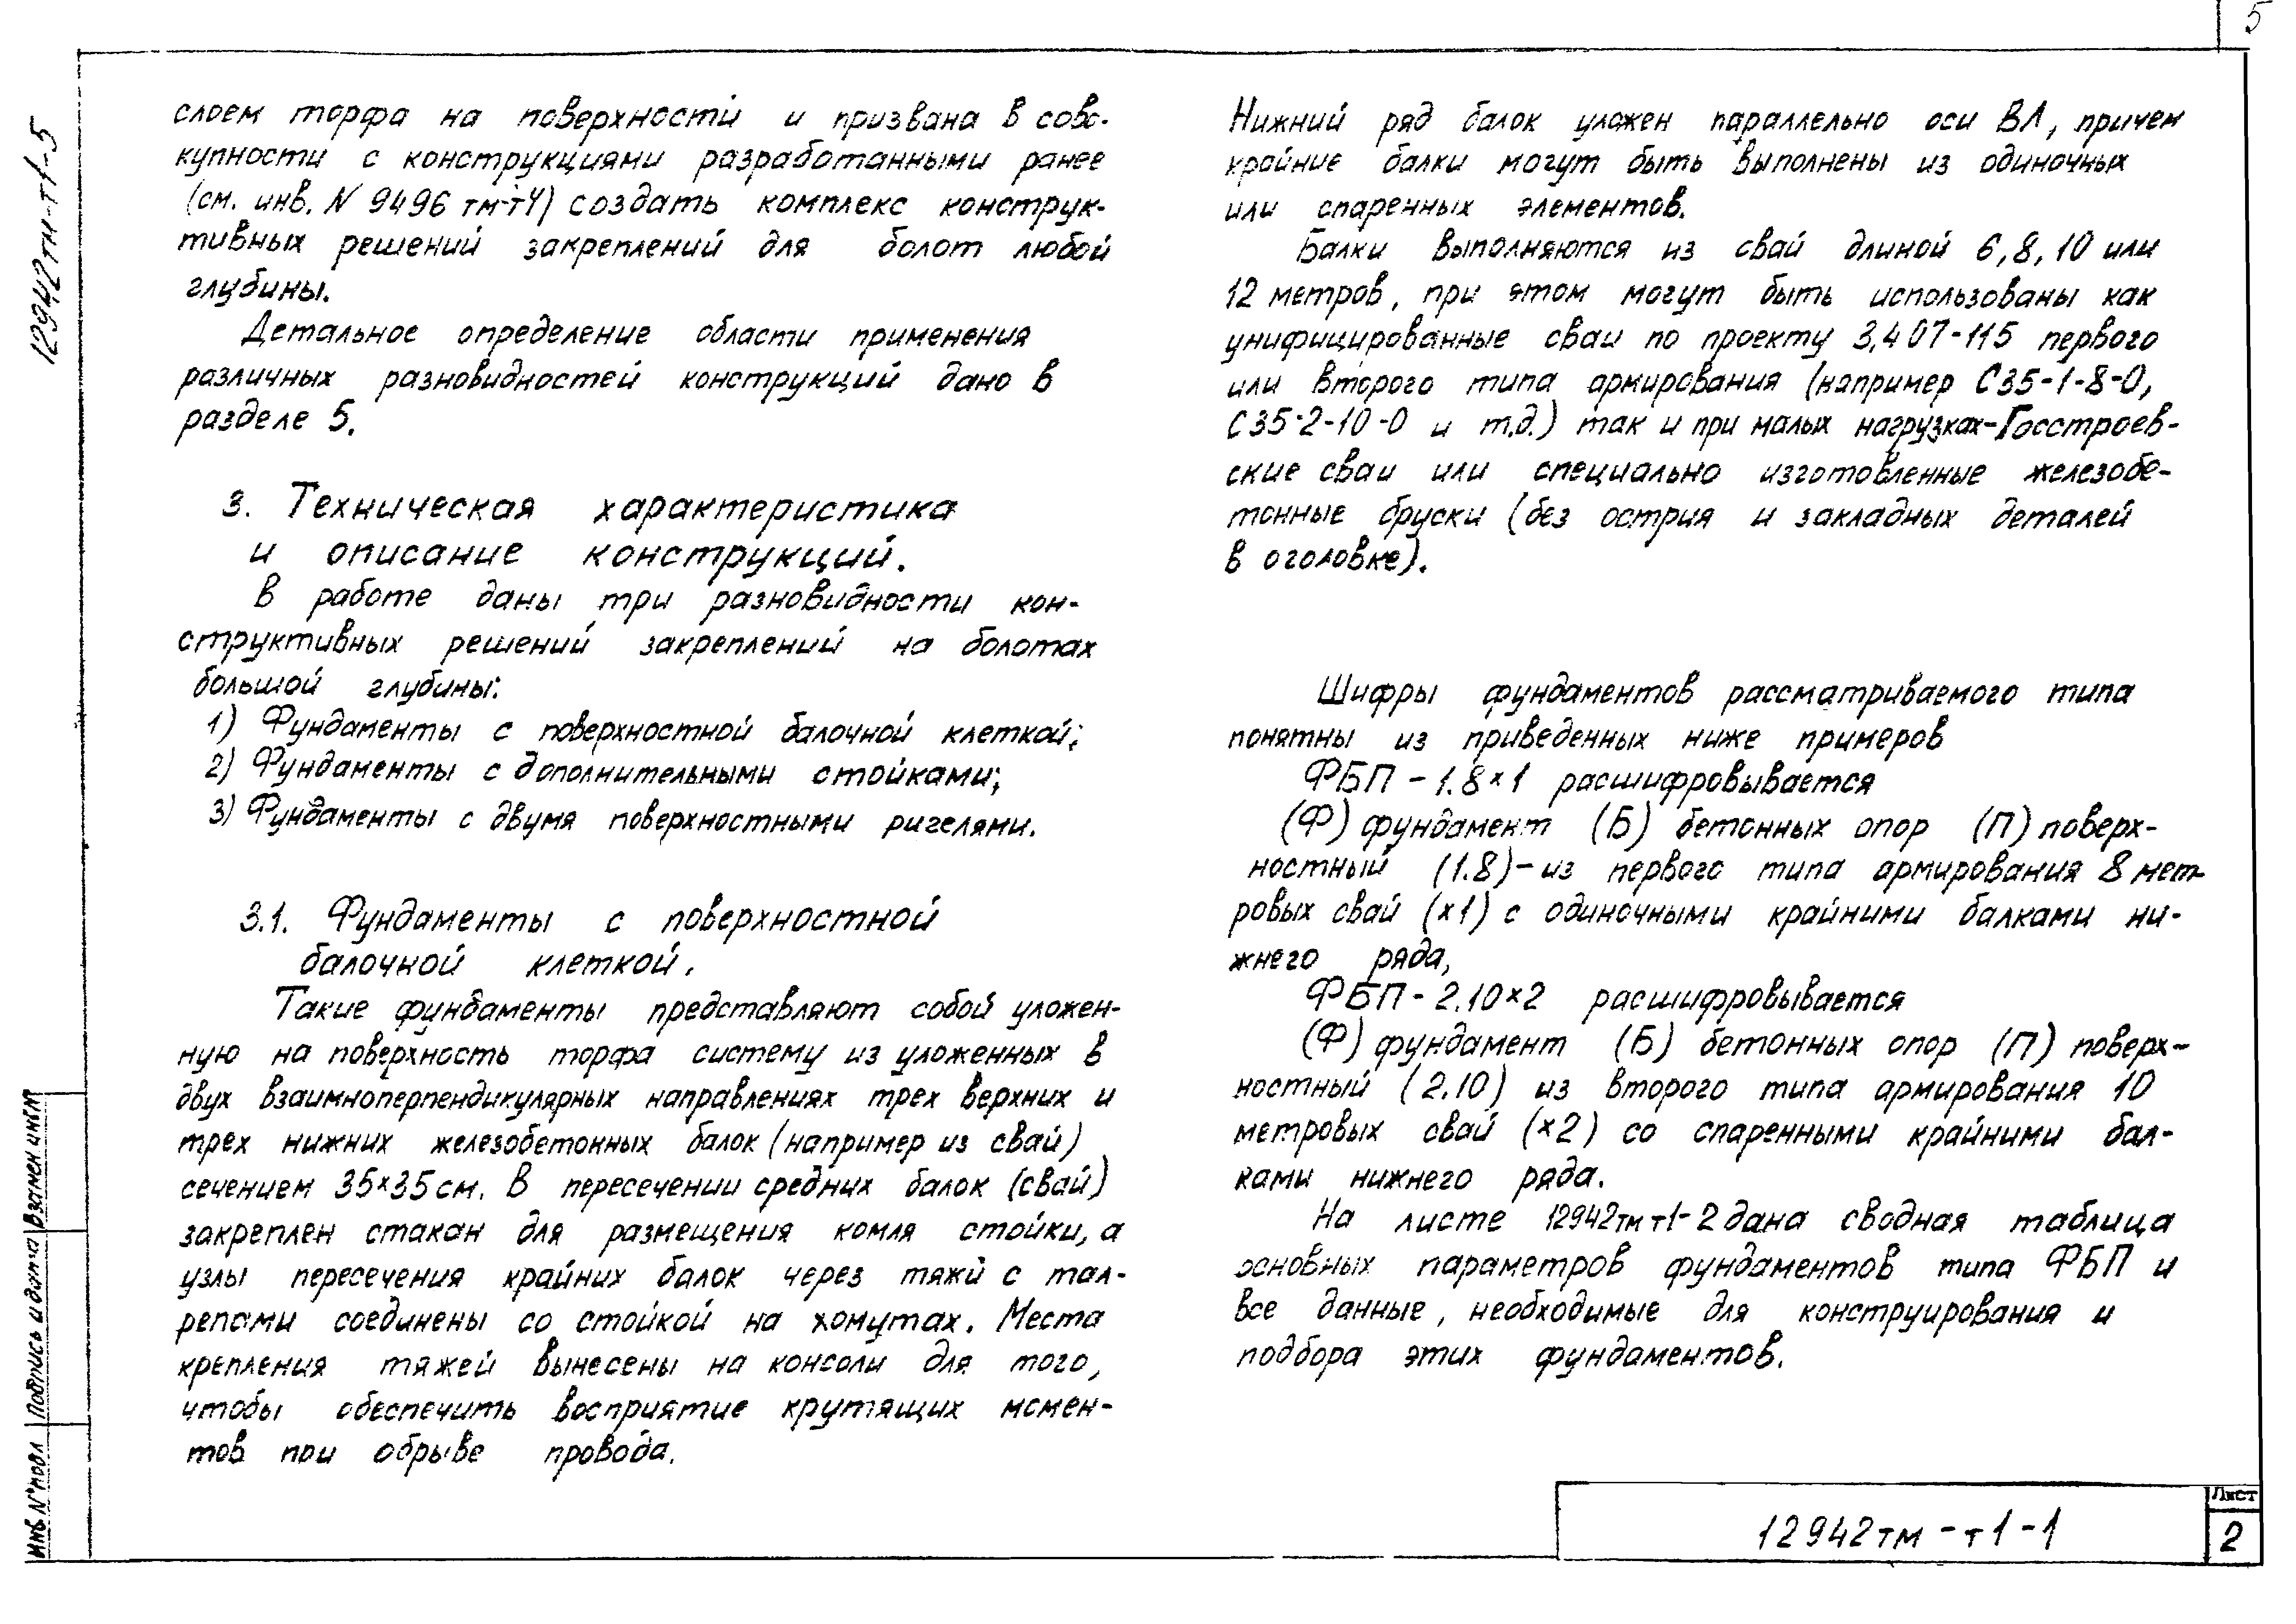 5
12942тм-т1-5
слоем торфа на поверхности и призвана в сово-
купности с конструкциями разработанными ранее
(см. инв. N 9496 тм-т4) создать комплекс конструк-
тивных решений закреплений для болот любой
глубины.
Детальное определение области применения
различных разновидностей конструкций дано в
разделе 5.
3. Техническая характеристика
и описание конструкций.
В работе даны три разновидности кон-
структивных решений закреплений на болотах
большой глубины:
1) Фундаменты с поверхностной балочной клеткой;
2) Фундаменты с дополнительными стойками;
3) Фундаменты с двумя поверхностными ригелями.
3.1. Фундаменты с поверхностной
балочной клеткой.
Такие фундаменты представляют собой уложен-
ную на поверхность торфа систему из уложенных в
двух взаимноперпендикулярных направлениях трех верхних и
трех нижних железобетонных балок (например из свай)
сечением 35×35 см. В пересечении средних балок (свай)
закреплен стакан для размещения комля стойки, а
узлы пересечения крайних балок через тяжи с тал-
репами соединены со стойкой на хомутах. Места
крепления тяжей вынесены на консоли для того,
чтобы обеспечить восприятие крутящих момен-
тов при обрыве провода.
Нижний ряд балок уложен параллельно оси ВЛ, причем
крайние балки могут быть выполнены из одиночных
или спаренных элементов.
Балки выполняются из свай длиной 6, 8, 10 или
12 метров, при этом могут быть использованы как
унифицированные сваи по проекту 3.407-115 первого
или второго типа армирования (например С35-1-8-0,
С35-2-10-0 и т.д.) так и при малых нагрузках-Госстроев-
ские сваи или специально изготовленные железобе-
тонные бруски (без острия и закладных деталей
в оголовке).
Шифры фундаментов рассматриваемого типа
понятны из приведенных ниже примеров
ФБП - 1.8×1 расшифровывается
(Ф) фундамент (Б) бетонных опор (П) поверх-
ностный (1.8)-из первого типа армирования 8 мет-
ровых свай (×1) с одиночными крайними балками ни-
жнего ряда,
ФБП - 2.10×2 расшифровывается
(Ф) фундамент (Б) бетонных опор (П) поверх-
ностный (2.10) из второго типа армирования 10
метровых свай (×2) со спаренными крайними бал-
ками нижнего ряда.
На листе 12942тм т1-2 дана сводная таблица
основных параметров фундаментов типа ФБП и
все данные, необходимые для конструирования и
подбора этих фундаментов.
Инв N°подл
Подпись и дата
Взамен инв№
12942тм-т1-1
Лист
2